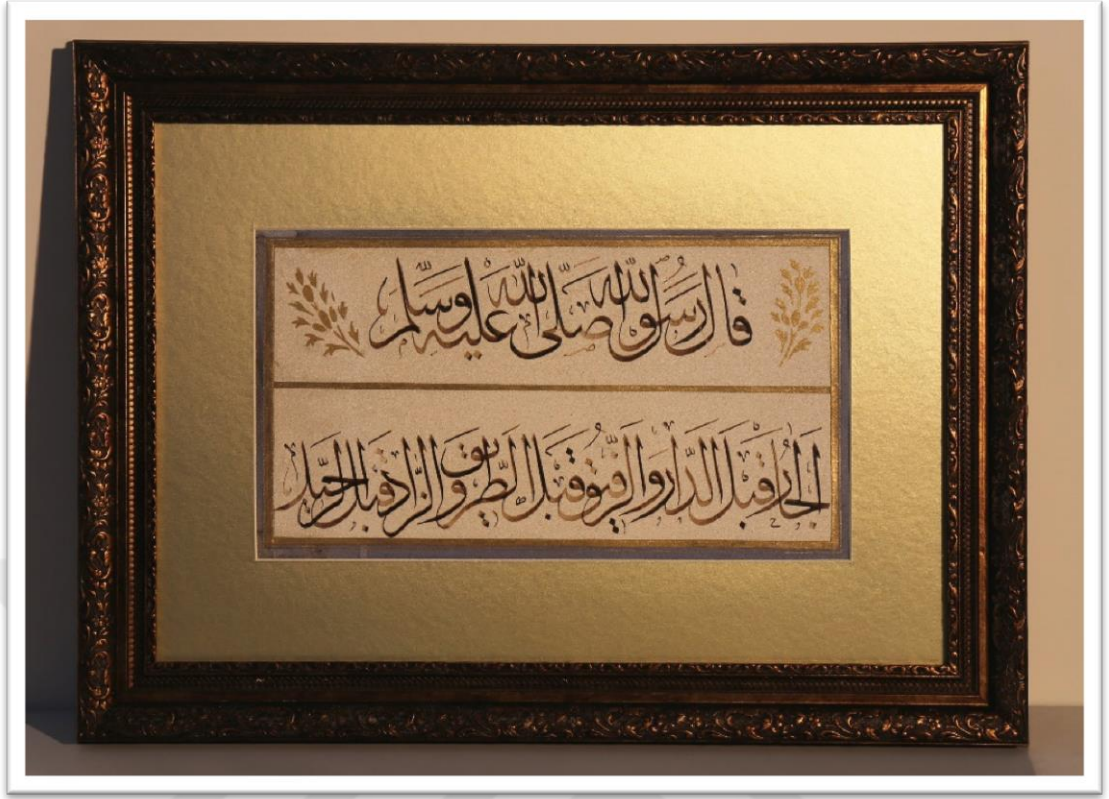 قَالَ رَسُولُ اللّٰه صَلَّى اللّٰه عَلَيْه وَسَلَّم
الجَارُ قَبْلَ الدَّار وَالرَّفِيقُ قَبْلَ الطَّرِيق وَالزَّاد قَبْلَ الرَّحِيل